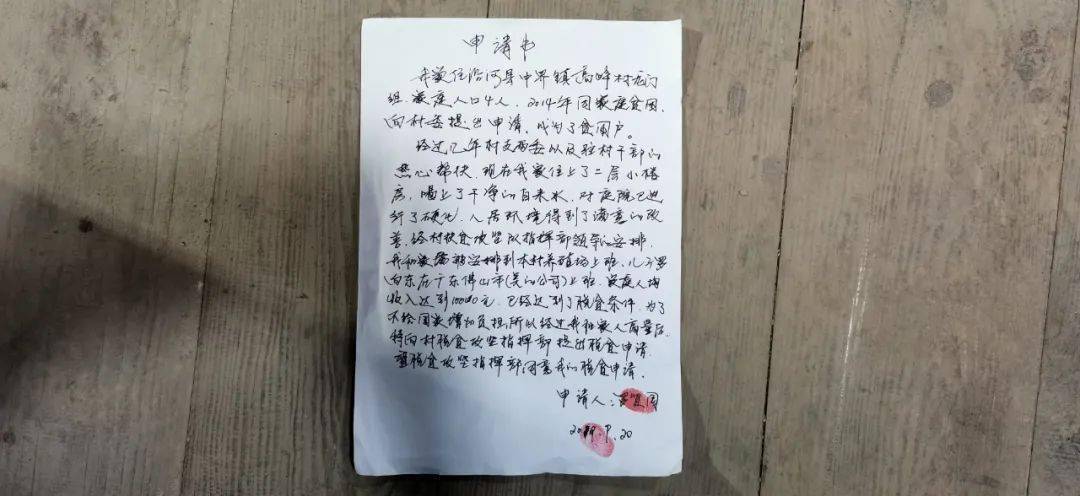 申请书
我家住沿河县中界镇高峰村龙门
组，家庭人口4人，2014年因家庭贫困，
向村委提出申请，成为了贫困户。
经过几年村支两委以及驻村干部的
热心帮扶，现在我家住上了二层小楼
房，喝上了干净的自来水，对庭院已进
行了硬化，人居环境得到了满意的改
善，经村扶贫攻坚队指挥部领导的安排，
我和妻被安排到本村养殖场上班，儿子罗
向东在广东佛山市(美的公司)上班，家庭人均
收入达到10000元，已经达到了脱贫条件，为了
不给国家增加负担所以经过我和家人商量后，
特向村脱贫攻坚指挥部提出脱贫申请，
望脱贫攻坚指挥部同意我的脱贫申请。
申请人：罗
20 .9.20